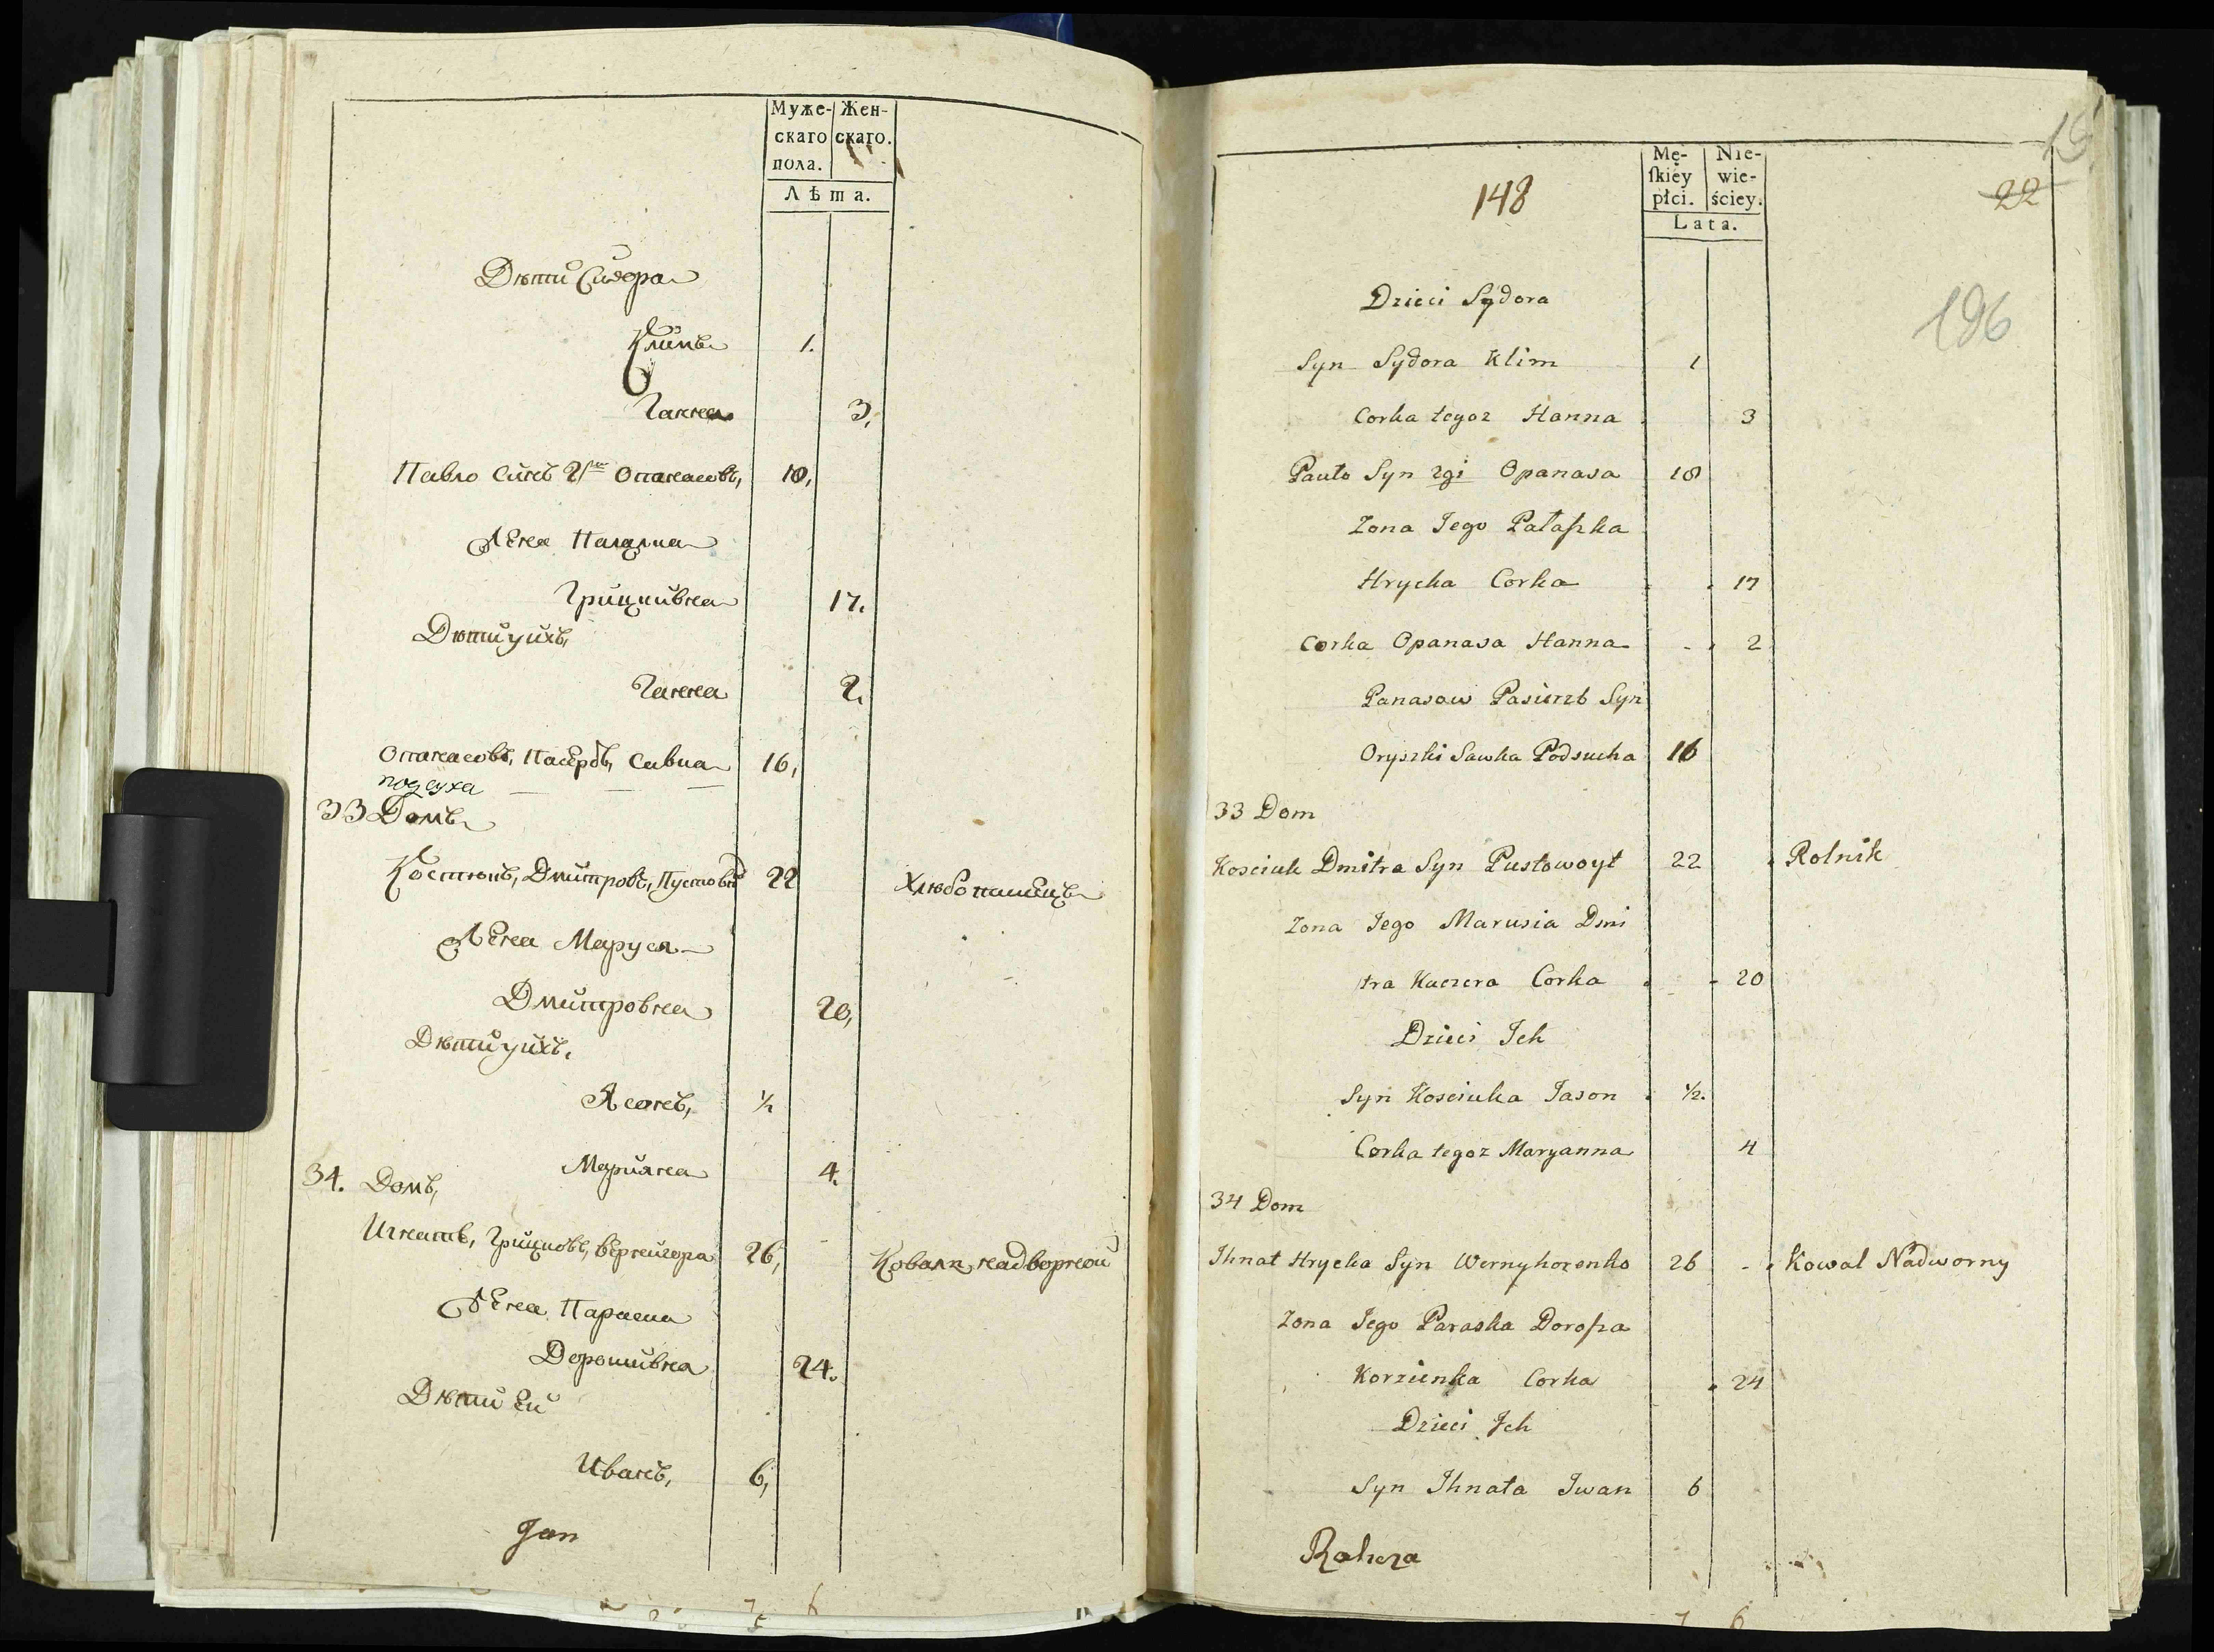 Муже-
скаго
пола.
Жен-
скаго.
Лѣта.
Дѣти Сидора
Климъ 1.
Ганна 3,
Павло Синъ 2й Опанасовъ, 18,
Жена Палажка
Грицкивна 17.
Дѣти ихъ,
Ганна 2.
Опанасовъ, Пасербъ, Савка 16,
подсуха
33 Домъ
Костюкъ, Дмитровъ, Пустовой 22 Хлѣбопашецъ
Жена Маруся
Дмитровна 20,
Дѣти ихъ,
Ясонъ, 1/2
Марияна 4.
34. Домъ,
Игнатъ, Грицковъ, Вернигора 26, Коваль надворной
Жена Параска
Дорошивна 24.
Дѣти Ей
Иванъ, 6,
Jan
7 6
15
148
Mę-
ſkiey
płci.
Nie-
wie-
ściey.
Lata.
22
196
Dzieci Sydora
Syn Sydora Klim 1
Corka tegoz Hanna 3
Pauło Syn 2gi Opanasa 18
Zona Jego Pałaſzka
Hrycka Corka 17
Corka Opanasa Hanna 2
Panasow Pasierzb Syn
Oryszki Sawka Podsucha 16
33 Dom
Kosciuk Dmitra Syn Pustowoyt 22 Rolnik
Zona Jego Marusia Dmi
tra Kuczera Corka 20
Dzieci Ich
Syn Kosciuka Jason 1/2.
Corka tegoz Maryanna 4
34 Dom
Ihnat Hrycka Syn Wernyhorenko 26 Kowal Nadworny
Zona Jego Paraska Doroſza
Korzienka Corka 24
Dzieci Ich
Syn Ihnata Iwan 6
Rakoza
7 6